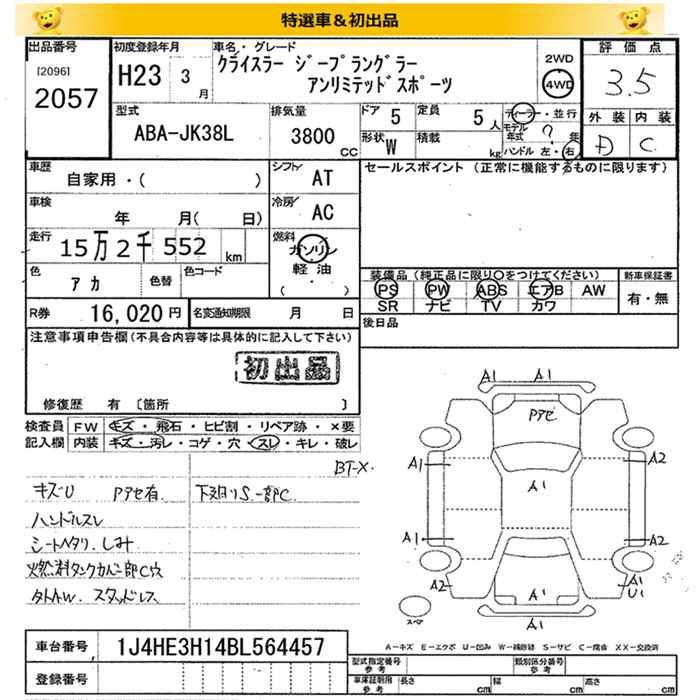 特選車&初出品
出品番号 初度登録年月 車名・グレード 2WD 評価点
[2096] H23 3月 クライスラー ジープラングラー 4WD 3.5
2057 アンリミテッドスポーツ
外装 内装
型式 排気量 ドア 5 定員 5人 ディーラー・並行 D C
ABA-JK38L 3800cc 形状 W 積載 kg モデル年式 ? 年
ハンドル 左・右
車歴 シフト セールスポイント(正常に機能するものに限ります)
自家用・( ) AT
車検 冷房
年 月( 日) AC
走行 燃料
15万2千552km ガソリン
軽油
( )
色 アカ 色替 色コード
装備品(純正品に限り○をつけてください) 新車保証書
PS PW ABS エアB AW 有・無
SR ナビ TV カワ
R券 16,020円 名変通知期限 月 日 後日品
注意事項申告欄(不具合内容等は具体的に記入して下さい)
初出品
修復歴 有 [箇所 ]
検査員 FW キズ・飛石・ヒビ割・リペア跡・×要
記入欄 内装 キズ・汚レ・コゲ・穴・スレ・キレ・破レ
BT-X.
キズU Pアセ有. 下廻りS.一部C.
ハンドルスレ
シートヘタリ.しみ
燃料タンクカバー一部C穴
タトAW.スタッドレス
A1 A1
Pアセ
A1 A1 A2
A1 A2
A2 A1 A1 U1
スペア A1
A-キズ E-エクボ U-凹み W-補修跡 S-サビ C-腐食 XX-交換済
車台番号 1J4HE3H14BL564457
登録番号
型式指定番号 参考 類別区分番号 参考
車庫証明用 参考 長さ cm 幅 cm 高さ cm